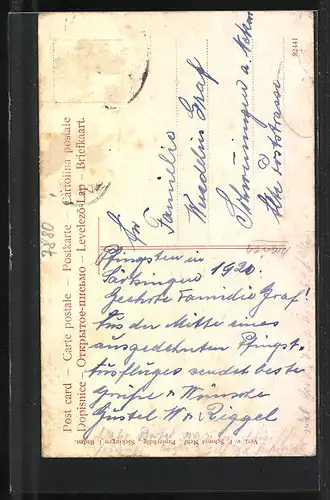 Post card – Carte postale – Postkarte – Cartolina postale
Dopisnice – Открытое письмо – Levelező-Lap – Briefkaart.
82441
7880
An
Familie
Wendelin Graf
Schwenningen a. Neckar
Alte
Pfingsten in
Säckingen 1920.
Geehrte Familie Graf!
Aus der Mitte eines
ausgedehnten Pfingst-
Ausfluges sendet beste
Grüsse u Wünsche
Gustel W. Riggel
Verl. v. F. Schmid Nchf., Papierhdlg., Säckingen i. Baden.